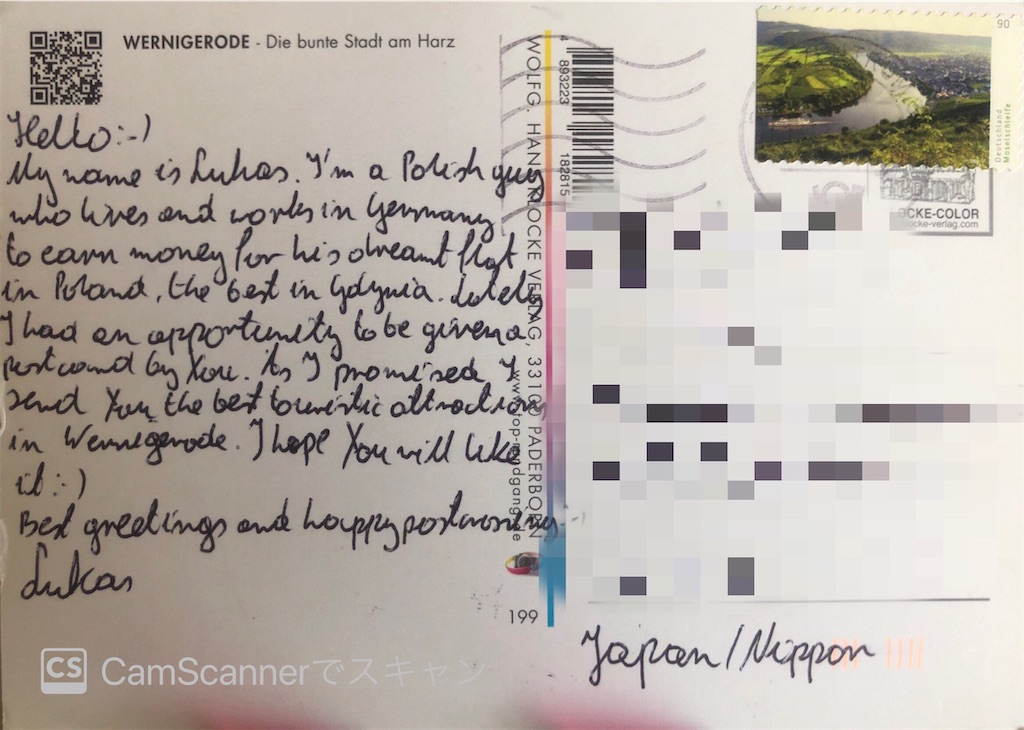 WERNIGERODE - Die bunte Stadt am Harz
Hello :-)
My name is Lukas. I'm a Polish guy
who lives and works in Germany
to earn money for his dreamt flat
in Poland, the best in Gdynia. Lately
I had an opportunity to be given a
postcard by You. As I promised I
send You the best touristic attraction
in Wernigerode. I hope You will like
it :-)
Best greetings and happy postcrossing
Lukas
WOLFG. HANS KLOCKE VERLAG, 33100 PADERBORN
4 893223 182815
199
90
Deutschland
Moselschleife
OCKE-COLOR
ocke-verlag.com
Japan/Nippon
CS CamScannerでスキャン